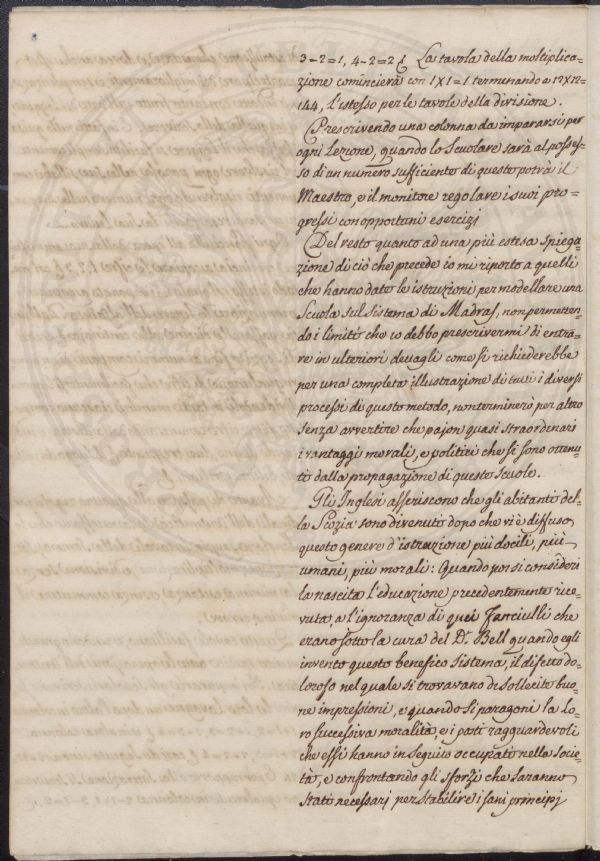 3-2=1, 4-2=2 & La tavola della moltiplica=
zione comincierà con 1X1=1 terminando a 12X12=
144, l'istesso per le tavole della divisione.
Prescrivendo una colonna da impararsi per
ogni Lezione, quando lo Scuolare sarà al posses=
so di un numero sufficiente di queste potrà il
Maestro, e il monitore regolare i suoi pro=
gressi con opportuni esercizj
Del resto quanto ad una più estesa spiega=
zione di ciò che precede io mi riporto a quelli
che hanno date le istruzioni per modellare una
Scuola sul sistema di Madras, non permetten=
do i limiti che io debbo prescrivermi di entra=
re in ulteriori dettagli come si richiederebbe
per una completa illustrazione di tutti i diversi
processi di questo metodo, non terminerò per altro
senza avvertire che pajon quasi straordinari
i vantaggi morali, e politici che si sono ottenu=
ti dalla propagazione di queste Scuole.
Gli Inglesi asseriscono che gli abitanti del=
la Scozia sono divenuti dopo che vi è diffuso
questo genere d'istruzione più docili, più
umani, più morali: Quando poi si consideri
la nascita l'educazione precedentemente rice=
vuta, e l'ignoranza di quei Fanciulli che
erano sotto la cura del D.r Bell quando egli
inventò questo benefico sistema, il difetto do=
loroso nel quale si trovavano di sollecite buo=
ne impressioni, e quando si paragoni la lo=
ro successiva moralità, e i posti ragguardevoli
che essi hanno in seguito occupato nella Socie=
tà, e confrontando gli sforzi che saranno
stati necessarj per stabilire i sani principj